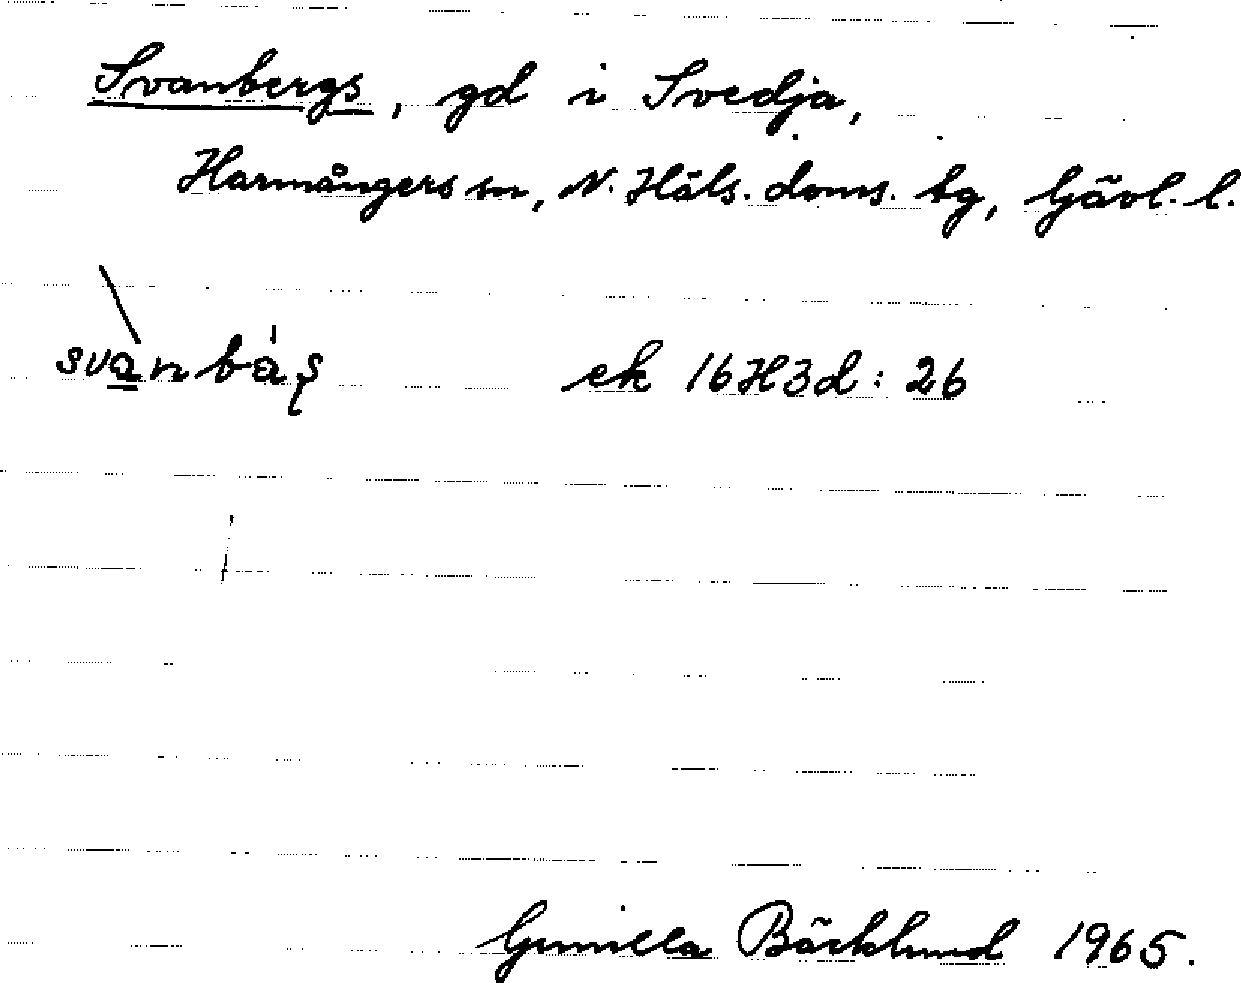 Svanbergs, gd i Svedja,
Harmångers sn, N. Häls. doms. tg, Gävl. l.
svànbáʂ ek 16H3d: 26
Gunilla Bäcklund 1965.